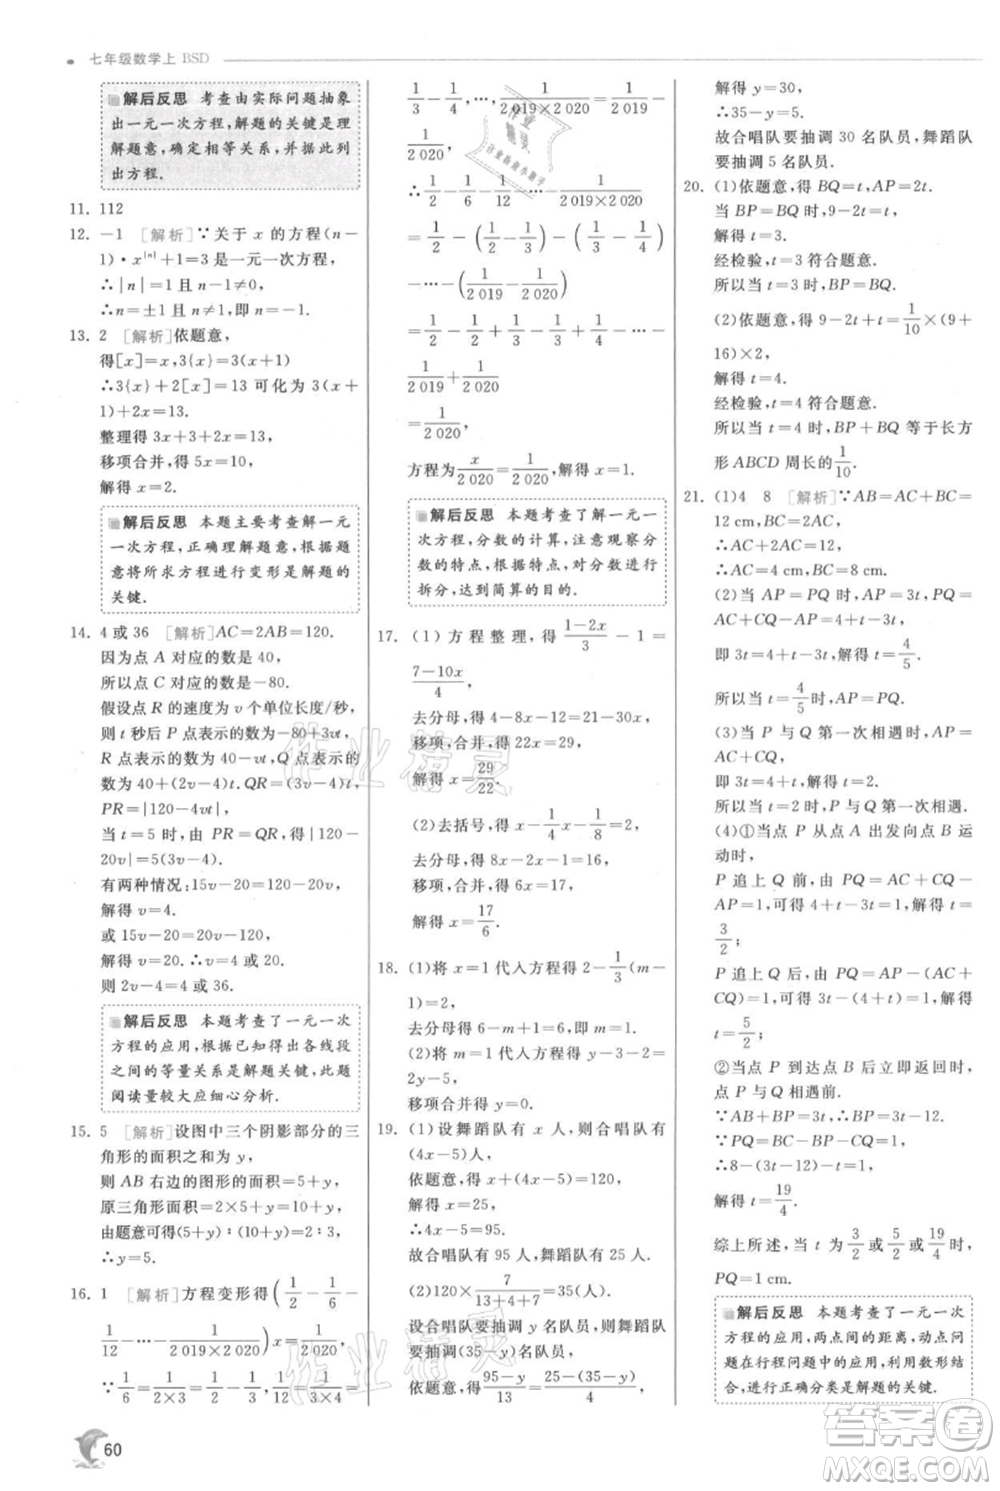 七年级数学上 BSD
解后反思 考查由实际问题抽象
出一元一次方程,解题的关键是理
解题意,确定相等关系,并据此列
出方程.
11. 112
12. -1 [解析]∵关于 x 的方程(n-
1)·x^|n|+1=3 是一元一次方程,
∴|n|=1 且 n-1≠0.
∴n=±1 且 n≠1,即 n=-1.
13. 2 [解析]依题意,
得[x]=x,3{x}=3(x+1)
∴3{x}+2[x]=13 可化为 3(x+
1)+2x=13.
整理得 3x+3+2x=13,
移项合并,得 5x=10,
解得 x=2.
解后反思 本题主要考查解一元
一次方程,正确理解题意,根据题意
将所求方程进行变形是解题的
关键.
14. 4 或 36 [解析]AC=2AB=120.
因为点 A 对应的数是 40,
所以点 C 对应的数是-80.
假设点 R 的速度为 v 个单位长度/秒,
则 t 秒后 P 点表示的数为-80+3vt,
R 点表示的数为 40+vt,Q 点表示的
数为 40+(2v-4)t.
PR=|120-2vt|
当 t=5 时,由 PR=QR,得|120-
20v|=5(3v-4).
有两种情况:15v-20=120-20v,
解得 v=4.
或 15v-20=20v-120,
解得 v=20.∴v=4 或 v=20.
则 2v-4=4 或 36.
解后反思 本题考查了一元一次
方程的应用,根据已知得出各线段
之间的等量关系是解题关键,此题
阅读量较大应细心分析.
15. 5 [解析]设图中三个阴影部分的三
角形的面积之和为 y,
则 AB 右边的图形的面积=5+y,
原三角形面积=2×5+y=10+y.
由题意可得(5+y):(10+y)=2:3,
∴y=5.
16. 1 [解析]方程变形得(1/2-1/6-
1/12-…-1/(2 019×2 020))x=1/2 020.
∵1/6=1/(2×3)=1/2-1/3,1/12=1/(3×4)=
1/3-1/4,…,1/(2 019×2 020)=1/2 019-
1/2 020,
∴1/2-1/6-1/12-…-1/(2 019×2 020)
=1/2-(1/2-1/3)-(1/3-1/4)
-…-(1/2 019-1/2 020)
=1/2-1/2+1/3-1/3+1/4-…-
1/2 019+1/2 020
=1/2 020.
方程为x/2 020=1/2 020,解得 x=1.
解后反思 本题考查了解一元一
次方程,分数的计算,注意观察分
数的特点,根据特点,对分数进行
拆分,达到简算的目的.
17. (1)方程整理,得 (1-2x)/3-1=
(7-10x)/4,
去分母,得 4-8x-12=21-30x,
移项,合并,得 22x=29,
解得 x=29/22.
(2)去括号,得 x-1/4x-1/8=2,
去分母,得 8x-2x-1=16,
移项,合并,得 6x=17,
解得 x=17/6.
18. (1)将 x=1 代入方程得 2-1/3(m-
1)=2,
去分母得 6-m+1=6,解得 m=1.
(2)将 m=1 代入方程得 y-3-2=
2y-5,
移项合并得 y=0.
19. (1)设舞蹈队有 x 人,则合唱队有
(4x-5)人.
依题意,得 x+4x-5=120,
解得 x=25,
∴4x-5=95.
故合唱队有 95 人,舞蹈队有 25 人.
(2)120×7/(13+4+7)=35(人).
设合唱队要抽调 y 名队员,则舞蹈队
要抽调(35-y)名队员,
依题意,得(95-y)/13=(25-(35-y))/4,
解得 y=30,
∴35-y=5.
故合唱队要抽调 30 名队员,舞蹈队
要抽调 5 名队员.
20. (1)依题意,得 BQ=t,AP=2t.
当 BP=BQ 时,9-2t=t,
解得 t=3.
经检验,t=3 符合题意.
所以当 t=3 时,BP=BQ.
(2)依题意,得 9-2t+t=1/10×(9+
16)×2,
解得 t=4.
经检验,t=4 符合题意.
所以当 t=4 时,BP+BQ 等于长方
形 ABCD 周长的1/10.
21. (1)4 8 [解析]∵AB=AC+BC=
12 cm,BC=2AC,
∴AC+2AC=12,
∴AC=4 cm,BC=8 cm.
(2)当 AP=PQ 时,AP=3t,PQ=
AC+CQ-AP=4+t-3t,
即 3t=4+t-3t,解得 t=4/5.
所以当 t=4/5时,AP=PQ.
(3)当 P 与 Q 第一次相遇时,AP=
AC+CQ,
即 3t=4+t,解得 t=2.
所以当 t=2 时,P 与 Q 第一次相遇.
(4)①当点 P 从点 A 出发向点 B 运
动时,
P 追上 Q 前,当 AC+CQ-AP=
PQ=1,可得 4+t-3t=1,解得 t=
3/2;
P 追上 Q 后,当 AP-(AC+
CQ)=1,可得 3t-(4+t)=1,解得
t=5/2;
②当点 P 到达点 B 立即返回时,
点 P 与 Q 相遇前.
∵AB+BP=3t,∴BP=3t-12.
∵PQ=BC-BP-CQ=1,
∴8-(3t-12)-t=1,
解得 t=19/4.
综上所述,当 t 为 3/2或5/2或19/4时,
PQ=1 cm.
解后反思 本题考查了一元一次
方程的应用,两点间的距离,动点问
题在行程问题中的应用,利用数形结
合,并正确分类是解题的关键.
60
作业精灵
作业精灵
作业精灵
答案圈
MXQE.COM